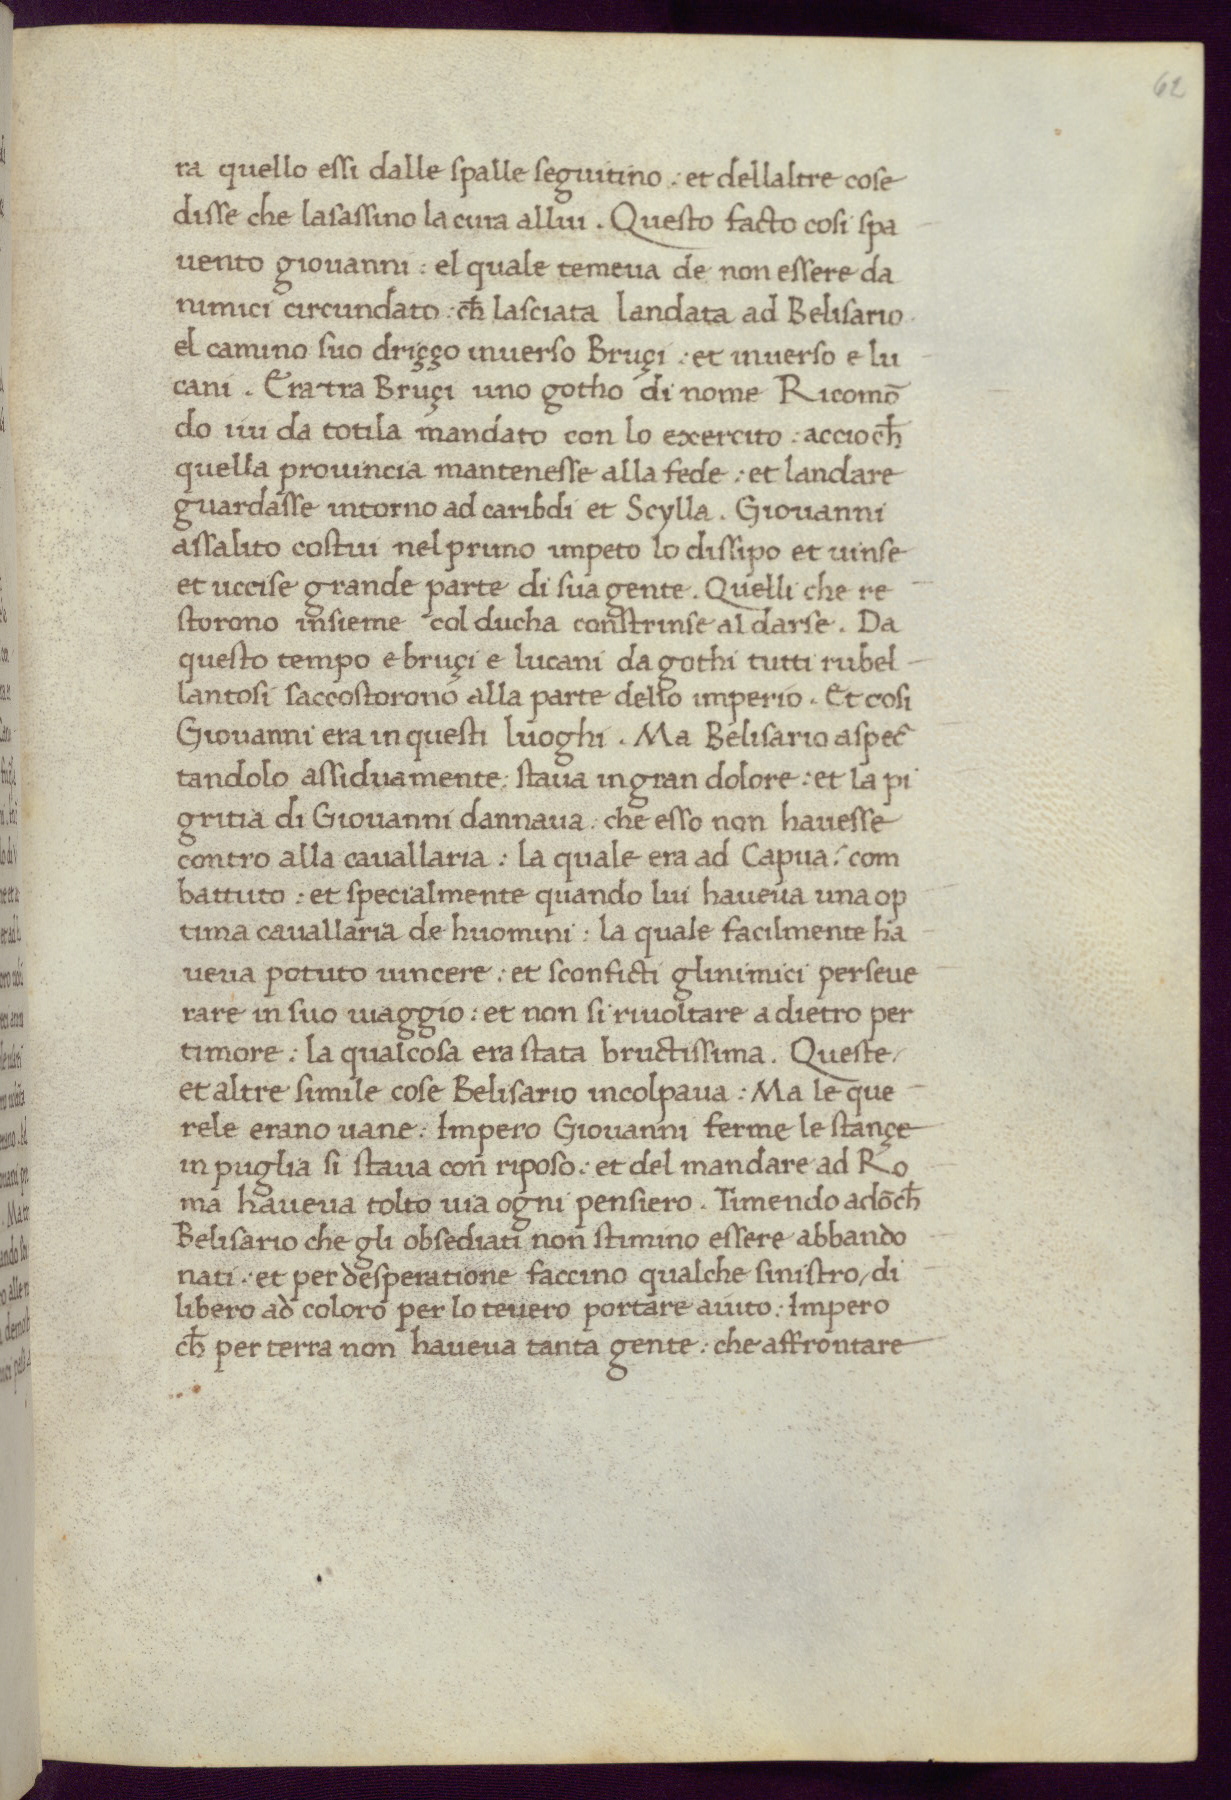 62
ra quello essi dalle spalle seguitino : et dellaltre cose
disse che lasassino la cura allui . Questo facto cosi spa
uento giouanni : el quale temeua de non essere da
nimici circundato : ch̄ lasciata landata ad Belisario
el camino suo driçço inuerso Bruçi : et inuerso e lu
cani . Era tra Bruçi uno gotho di nome Ricomō
do iui da totila mandato con lo exercito : accioch̄
quella prouincia mantenesse alla fede : et landare
guardasse intorno ad caribdi et Scylla . Giouanni
assalito costui nel primo impeto lo dissipo et uinse
et uccise grande parte di sua gente . Quelli che re
storono insieme col ducha constrinse al darse . Da
questo tempo e bruçi e lucani da gothi tutti rubel
lantosi saccostorono alla parte dello imperio . Et cosi
Giouanni era in questi luoghi . Ma Belisario aspec
tandolo assiduamente : staua in gran dolore : et la pi
gritia di Giouanni dannaua . che esso non hauesse
contro alla cauallaria : la quale era ad Capua : com
battuto : et specialmente quando lui haueua una op
tima cauallaria de huomini : la quale facilmente ha
ueua potuto uincere : et sconficti glinimici perseue
rare in suo uiaggio : et non si riuoltare a dietro per
timore : la qualcosa era stata bructissima . Queste
et altre simile cose Belisario incolpaua : Ma le que
rele erano uane : Impero Giouanni ferme le stançe
in puglia si staua con riposo : et del mandare ad Ro
ma haueua tolto uia ogni pensiero . Timendo adōch̄
Belisario che gli obsediati non stimino essere abbando
nati : et per desperatione faccino qualche sinistro / di
libero ad coloro per lo teuero portare aiuto : Impero
ch̄ per terra non haueua tanta gente : che affrontare